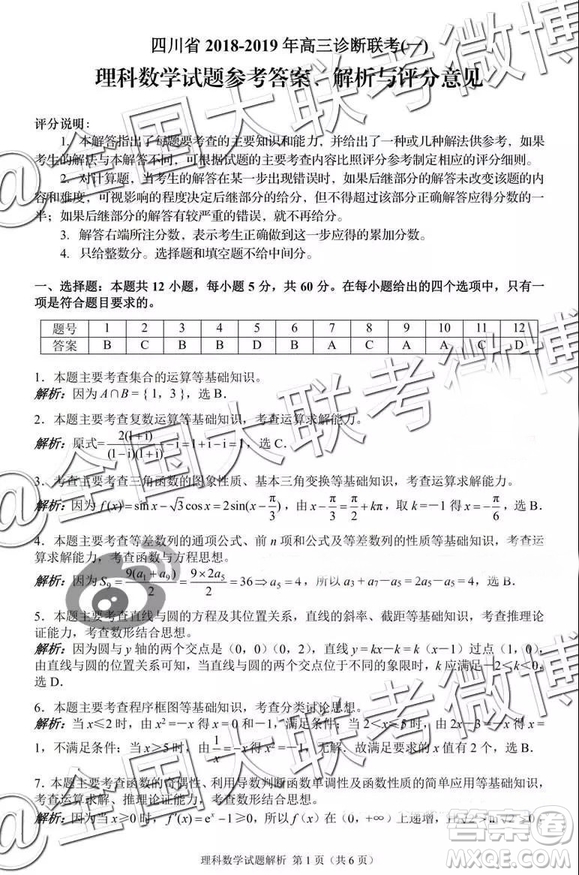 四川省 2018-2019 年高三诊断联考(一)
理科数学试题参考答案、解析与评分意见
评分说明：
1. 本解答指出了每题要考查的主要知识和能力，并给出了一种或几种解法供参考，如果
考生的解法与本解答不同，可根据试题的主要考查内容比照评分参考制定相应的评分细则。
2. 对计算题，当考生的解答在某一步出现错误时，如果后继部分的解答未改变该题的内
容和难度，可视影响的程度决定后继部分的给分，但不得超过该部分正确解答应得分数的一
半；如果后继部分的解答有较严重的错误，就不再给分。
3. 解答右端所注分数，表示考生正确做到这一步应得的累加分数。
4. 只给整数分。选择题和填空题不给中间分。
一、选择题：本题共 12 小题，每小题 5 分，共 60 分。在每小题给出的四个选项中，只有一
项是符合题目要求的。
题号 1 2 3 4 5 6 7 8 9 10 11 12
答案 B C B D B A C D A C
1. 本题主要考查集合的运算等基础知识。
解析：因为 A∩B={ 1，3 }，选 B.
2. 本题主要考查复数运算等基础知识，考查运算求解能力。
解析：原式=2(1+i)/(1-i)(1+i) -i=1+i-i=1，选 C.
3. 考查主要考查三角函数的图象性质、基本三角变换等基础知识，考查运算求解能力。
解析：因为 f(x)=sin x-√3cos x=2sin(x-π/3)，由 x-π/3=π/2+kπ，取 k=-1 得 x=-π/6，选 B.
4. 本题主要考查等差数列的通项公式、前 n 项和公式及等差数列的性质等基础知识，考查运
算求解能力，考查函数与方程思想。
解析：因为 S₉=9(a₁+a₉)/2=9×2a₅/2=36⇒a₅=4，所以 a₃+a₇-a₅=2a₅-a₅=4，选 B.
5. 本题主要考查直线与圆的方程及其位置关系，直线的斜率、截距等基础知识，考查推理论
证能力，考查数形结合思想。
解析：因为圆与 y 轴的两个交点是（0，0）（0，2），直线 y=kx-k=k（x-1）过点（1，0），
由直线与圆的位置关系可知，当直线与圆有两个不同的交点时，k 应满足-2<k<0，
选 D.
6. 本题主要考查程序框图等基础知识，考查分类讨论思想。
解析：当 x≤2 时，由 x²=-x 得 x=0 和-1，满足条件；当 2<x≤5 时，由 2x-3=-x 得 x=
1，不满足条件；当 x>5 时，由 1/x=-x 得 x²=-1，无解，故满足要求的 x 值有 2 个，选 B.
7. 本题主要考查函数的奇偶性、利用导数判断函数单调性及函数性质的简单应用等基础知识，
考查运算求解、推理论证能力，考查数形结合思想。
解析：因为当 x≥0 时，f′(x)=eˣ-1≥0，所以 f(x) 在（0，+∞）上递增，
理科数学试题解析 第 1 页（共 6 页）
@全国大联考微博